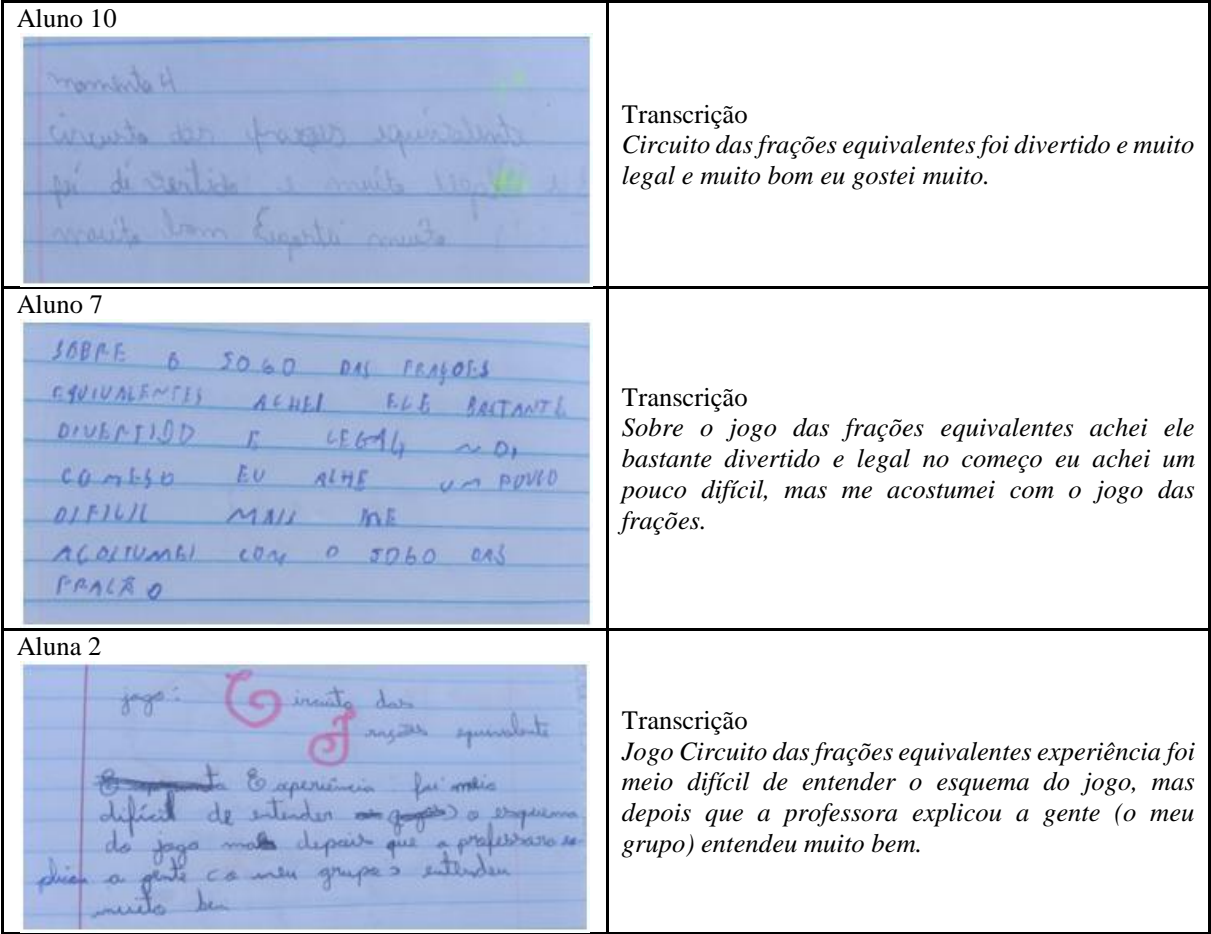 Aluno 10
momento 4
circuito das frações equivalente
foi divertido e muito legal e
muito bom Eu gostei muito
Transcrição
Circuito das frações equivalentes foi divertido e muito
legal e muito bom eu gostei muito.
Aluno 7
SOBRE O JOGO DAS FRAÇOES
EQUIVALENTES ACHEI ELE BASTANTE
DIVERTIDO E LEGAL NO
COMESO EU ACHE UM POUCO
DIFICIL MAIS ME
ACOSTUMEI COM O JOGO DAS
FRACÃO
Transcrição
Sobre o jogo das frações equivalentes achei ele
bastante divertido e legal no começo eu achei um
pouco difícil, mas me acostumei com o jogo das
frações.
Aluna 2
jogo: Circuito das
Frações equivalente
Experiência foi meio
difícil de entender o esquema
do jogo mas depois que a professora ex-
plicou a gente (o meu grupo) entendeu
muito bem
Transcrição
Jogo Circuito das frações equivalentes experiência foi
meio difícil de entender o esquema do jogo, mas
depois que a professora explicou a gente (o meu
grupo) entendeu muito bem.